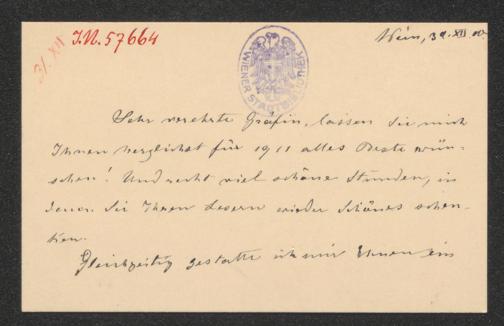 31. XII
I.N. 57664
WIENER STADTBIBLIOTHEK
Wien, 31. XII. 10
Sehr verehrte Gräfin, lassen Sie mich
Ihnen herzlichst für 1911 alles Beste wün-
schen! Und recht viel schöne Stunden, in
denen Sie Ihren Lesern wieder Schönes schen-
ken.
Gleichzeitig gestatte ich mir Ihnen ein